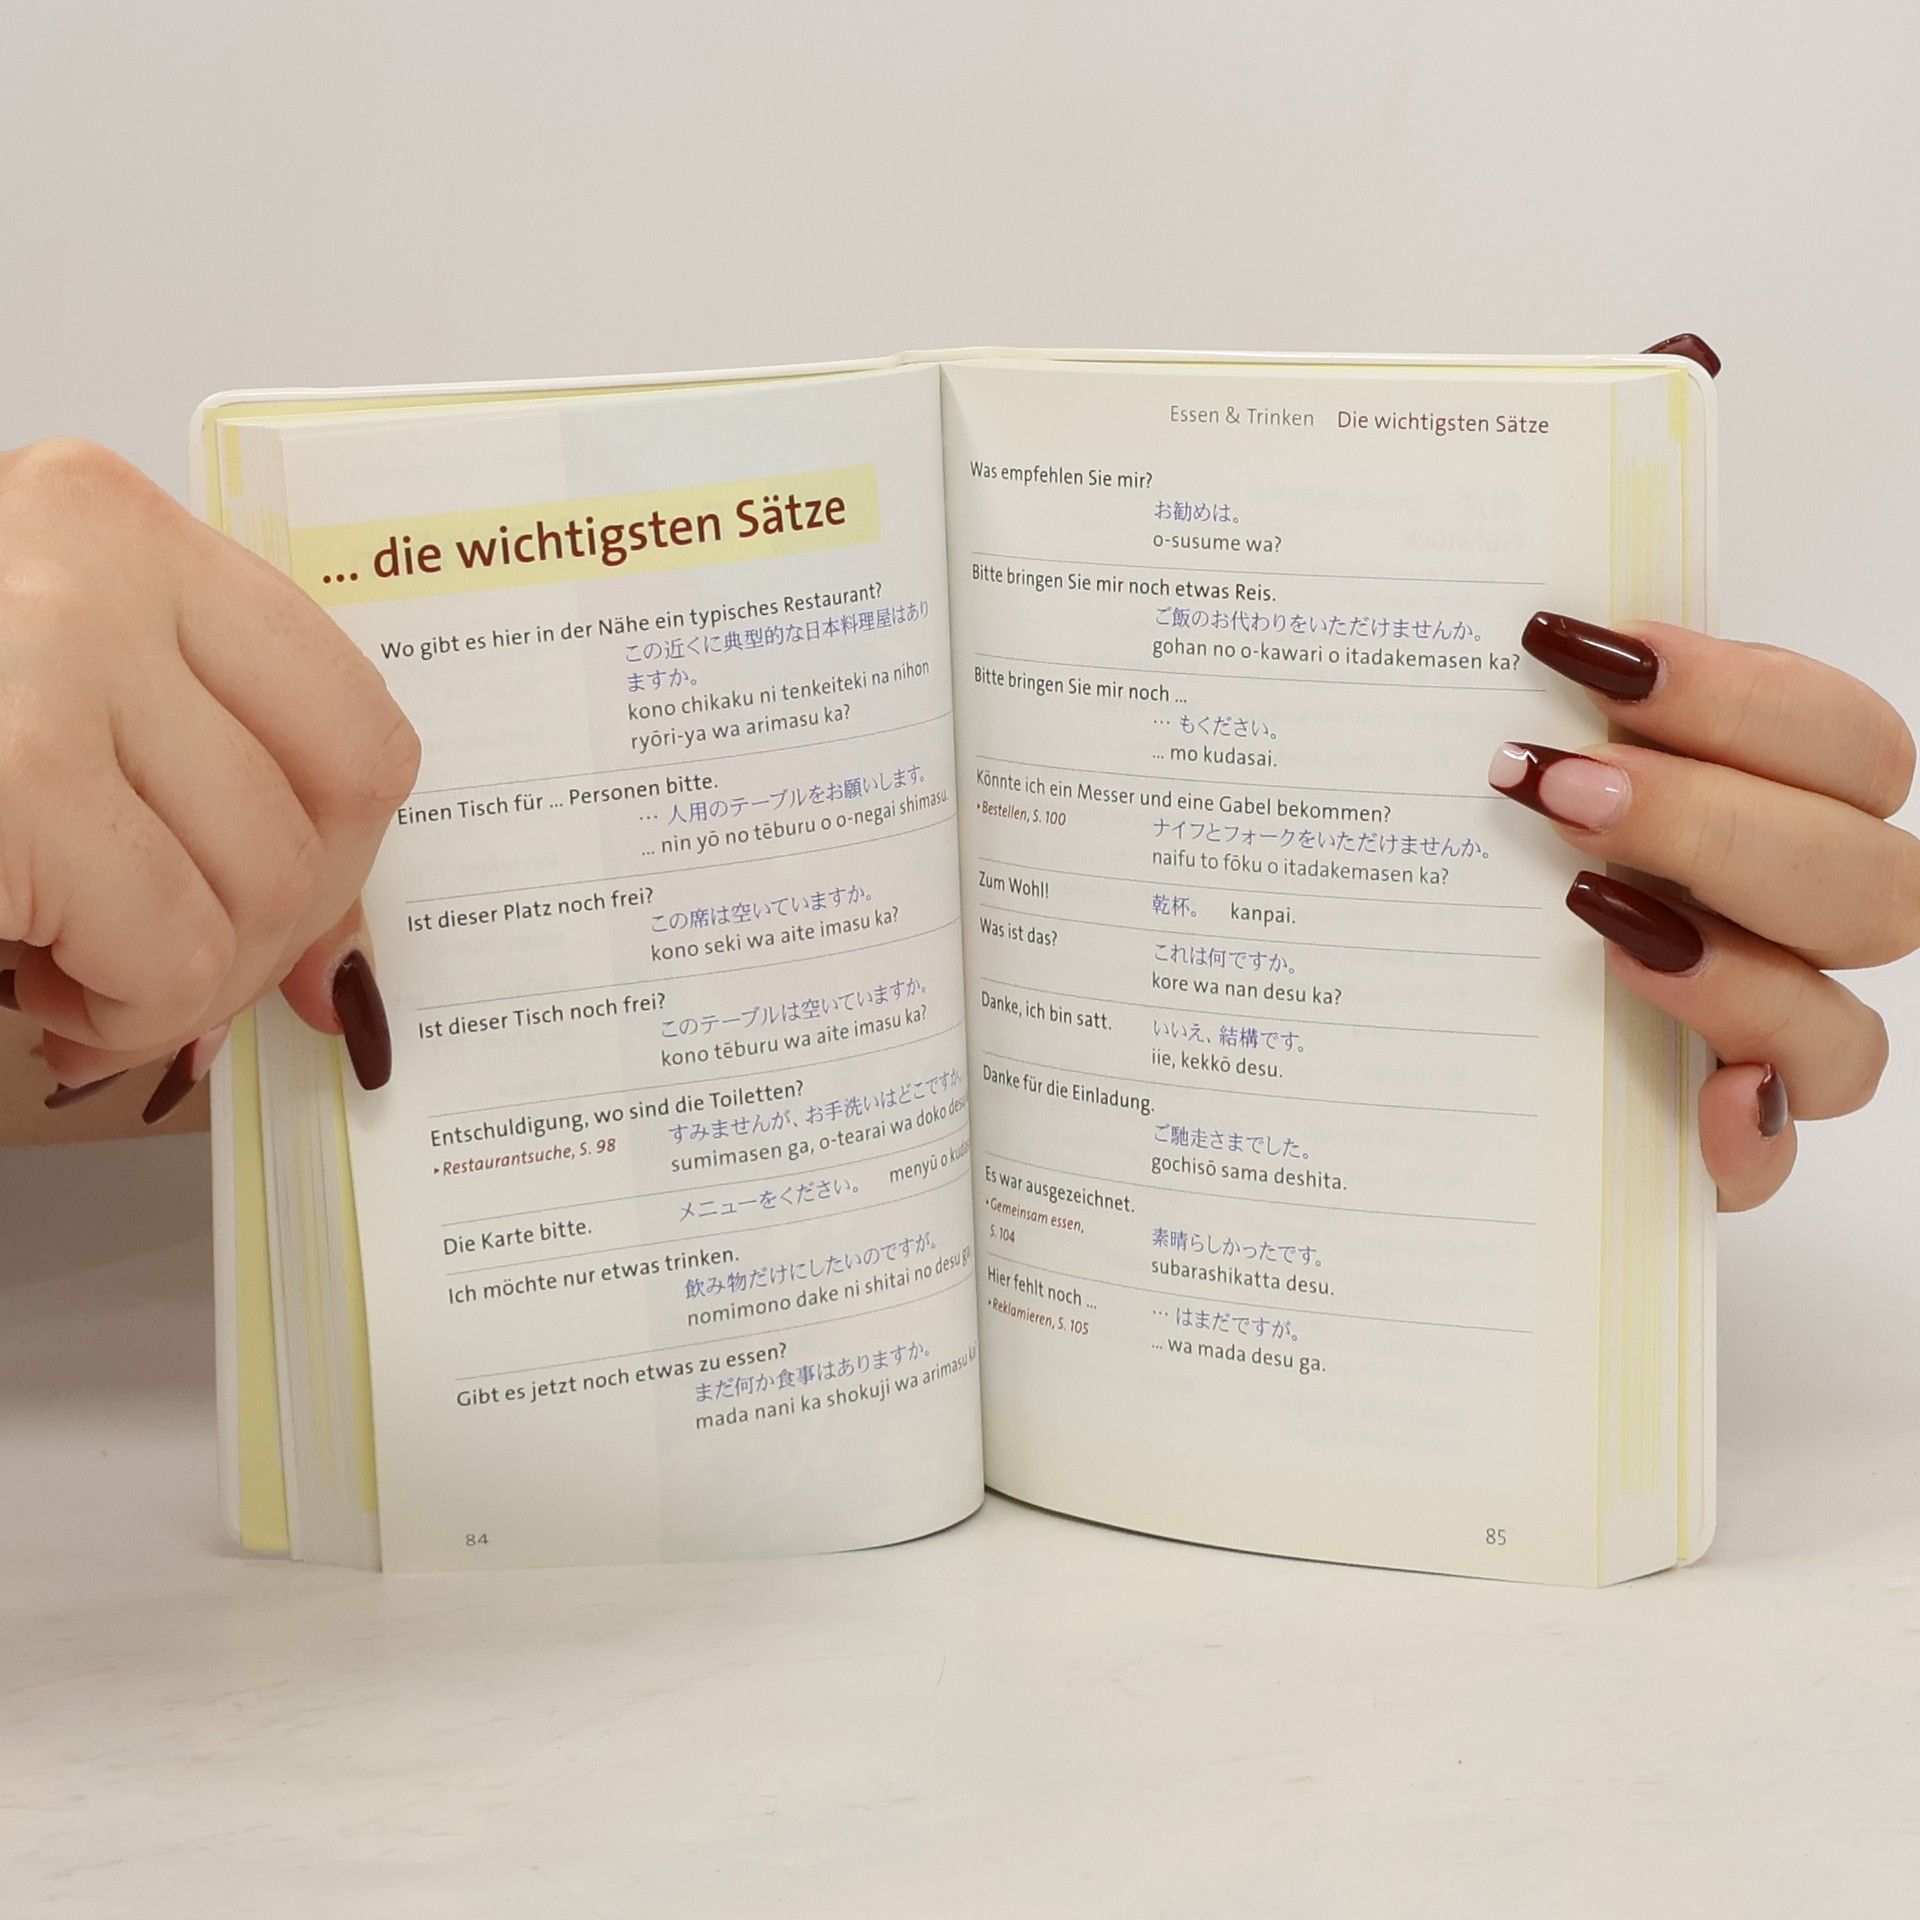 ... die wichtigsten Sätze
Wo gibt es hier in der Nähe ein typisches Restaurant?
この近くに典型的な日本料理屋はあり
ますか。
kono chikaku ni tenkeiteki na nihon
ryōri-ya wa arimasu ka?
Einen Tisch für ... Personen bitte.
… 人用のテーブルをお願いします。
... nin yō no tēburu o o-negai shimasu.
Ist dieser Platz noch frei?
この席は空いていますか。
kono seki wa aite imasu ka?
Ist dieser Tisch noch frei?
このテーブルは空いていますか。
kono tēburu wa aite imasu ka?
Entschuldigung, wo sind die Toiletten?
すみませんが、お手洗いはどこですか。
▸Restaurantsuche, S. 98
sumimasen ga, o-tearai wa doko desu
Die Karte bitte.
メニューをください。 menyū o
Ich möchte nur etwas trinken.
飲み物だけにしたいのですが。
nomimono dake ni shitai no desu ga.
Gibt es jetzt noch etwas zu essen?
まだ何か食事はありますか。
mada nani ka shokuji wa arimasu ka
84
Essen & Trinken Die wichtigsten Sätze
Was empfehlen Sie mir?
お勧めは。
o-susume wa?
Bitte bringen Sie mir noch etwas Reis.
ご飯のお代わりをいただけませんか。
gohan no o-kawari o itadakemasen ka?
Bitte bringen Sie mir noch ...
… もください。
... mo kudasai.
Könnte ich ein Messer und eine Gabel bekommen?
▸Bestellen, S. 100
ナイフとフォークをいただけませんか。
naifu to fōku o itadakemasen ka?
Zum Wohl!
乾杯。 kanpai.
Was ist das?
これは何ですか。
kore wa nan desu ka?
Danke, ich bin satt.
いいえ、結構です。
iie, kekkō desu.
Danke für die Einladung.
ご馳走さまでした。
gochisō sama deshita.
Es war ausgezeichnet.
▸Gemeinsam essen,
S. 104
素晴らしかったです。
subarashikatta desu.
Hier fehlt noch ...
▸Reklamieren, S. 105
… はまだですが。
... wa mada desu ga.
85